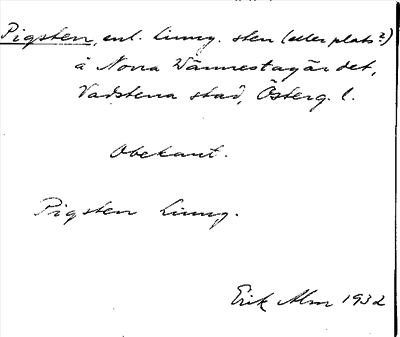 Pigsten, enl. Linng. sten (eller plats?)
å Norra Wännestagärdet,
Vadstena stad, Österg. l.
Obekant.
Pigsten Linng.
Erik Alm 1932